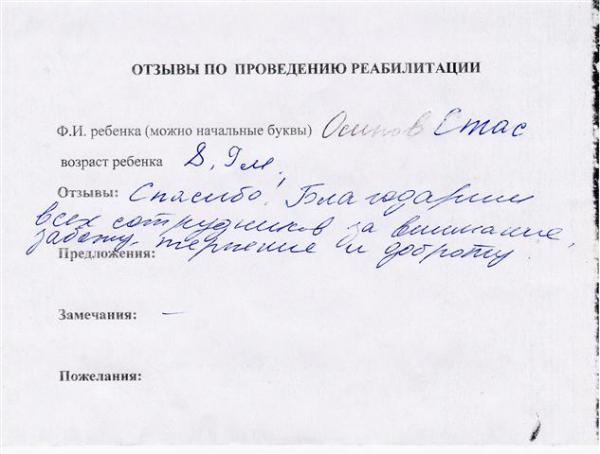 ОТЗЫВЫ ПО ПРОВЕДЕНИЮ РЕАБИЛИТАЦИИ
Ф.И. ребенка (можно начальные буквы) Осипов Стас
возраст ребенка 9м.
Отзывы: Спасибо! Благодарим
всех сотрудников за внимание,
заботу, терпение и доброту.
Предложения:
Замечания: —
Пожелания: